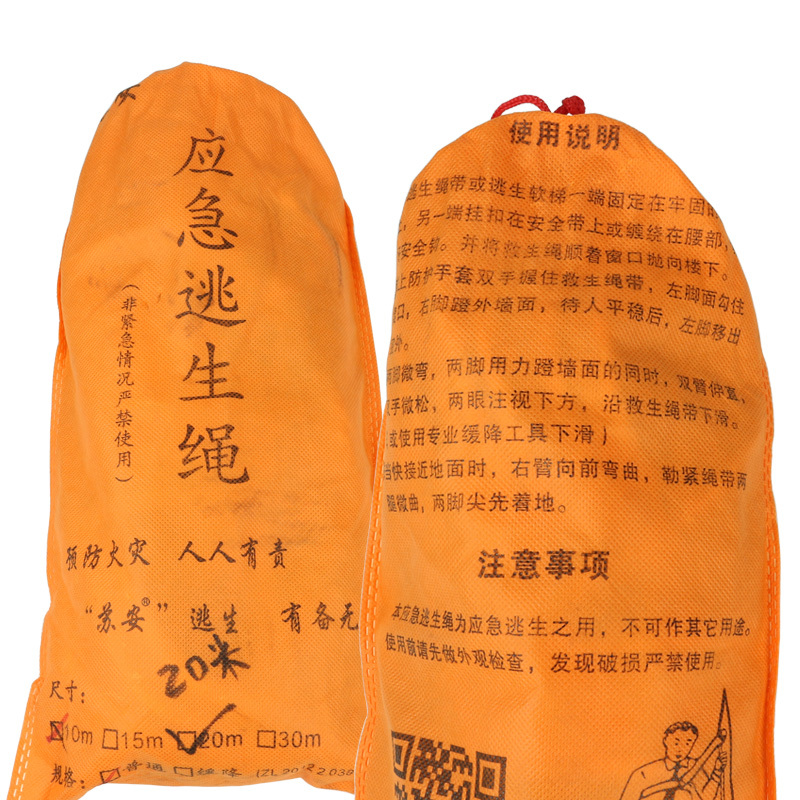 应急逃生绳
(非紧急情况严禁使用)
预防火灾 人人有责
“苏安®”逃生 有备无
20米
尺寸：
10m 15m 20m 30m
规格： 普通 缓降
使用说明
逃生绳带或逃生软梯一端固定在牢固
，另一端挂扣在安全带上或缠绕在腰部，
安全锁。并将救生绳顺着窗口抛向楼下。
上防护手套双手握住救生绳带，左脚面勾住
窗口，右脚蹬外墙面，待人平稳后，左脚移出
外。
两脚微弯，两脚用力蹬墙面的同时，双臂伸直，
手微松，两眼注视下方，沿救生绳带下滑。
(或使用专业缓降工具下滑)
当快接近地面时，右臂向前弯曲，勒紧绳带两
腿微曲，两脚尖先着地。
注意事项
本应急逃生绳为应急逃生之用，不可作其它用途。
使用前请先做外观检查，发现破损严禁使用。